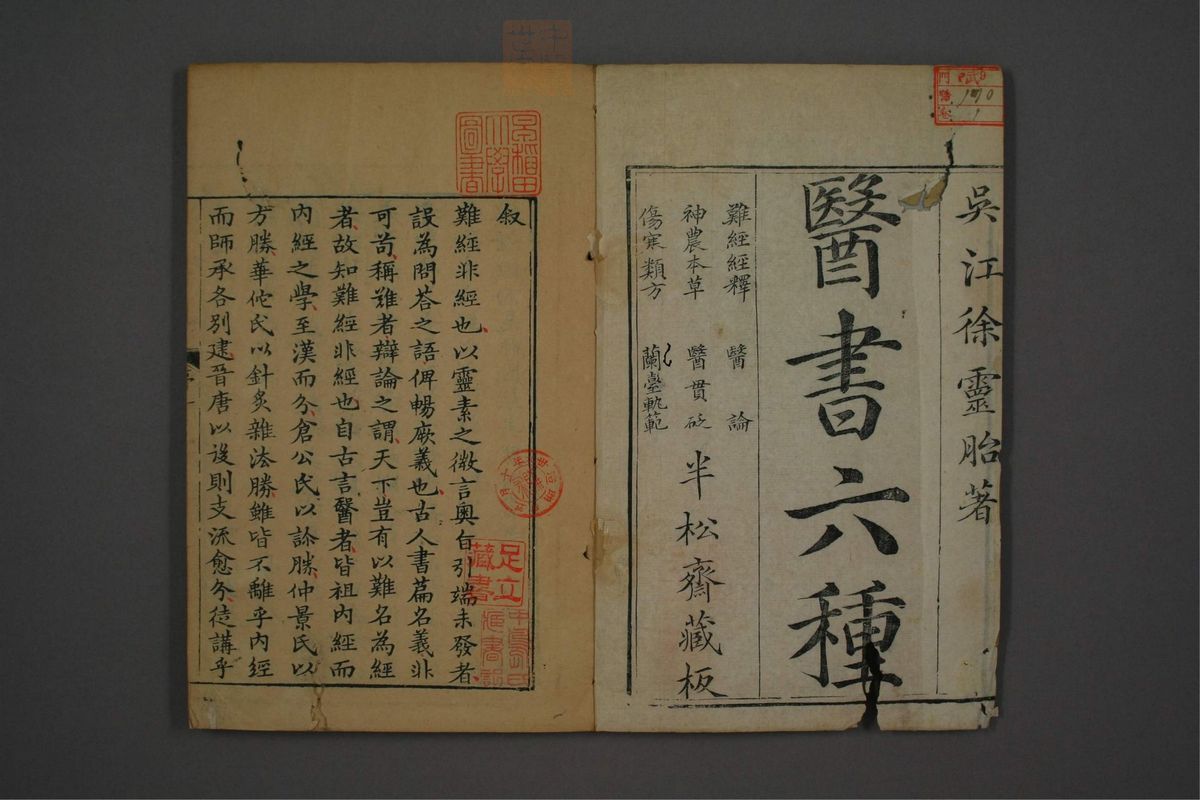 吳江徐靈胎著
醫書六種
難經經釋 醫論
神農本草 醫貫砭
傷寒類方 蘭臺軌範
半松齋藏板
叙
難經非經也以靈素之微言奧旨引端未發者
設為問荅之語俾暢厥義也古人書篇名義非
可苟稱難者辯論之謂天下豈有以難名為經
者故知難經非經也自古言醫者皆祖內經而
內經之學至漢而分倉公氏以診勝仲景氏以
方勝華佗氏以針灸雜法勝雖皆不離乎內經
而師承各別建晉唐以後則支流愈分徒講乎
早稲田
大學
圖書
足立
藏書
190
1